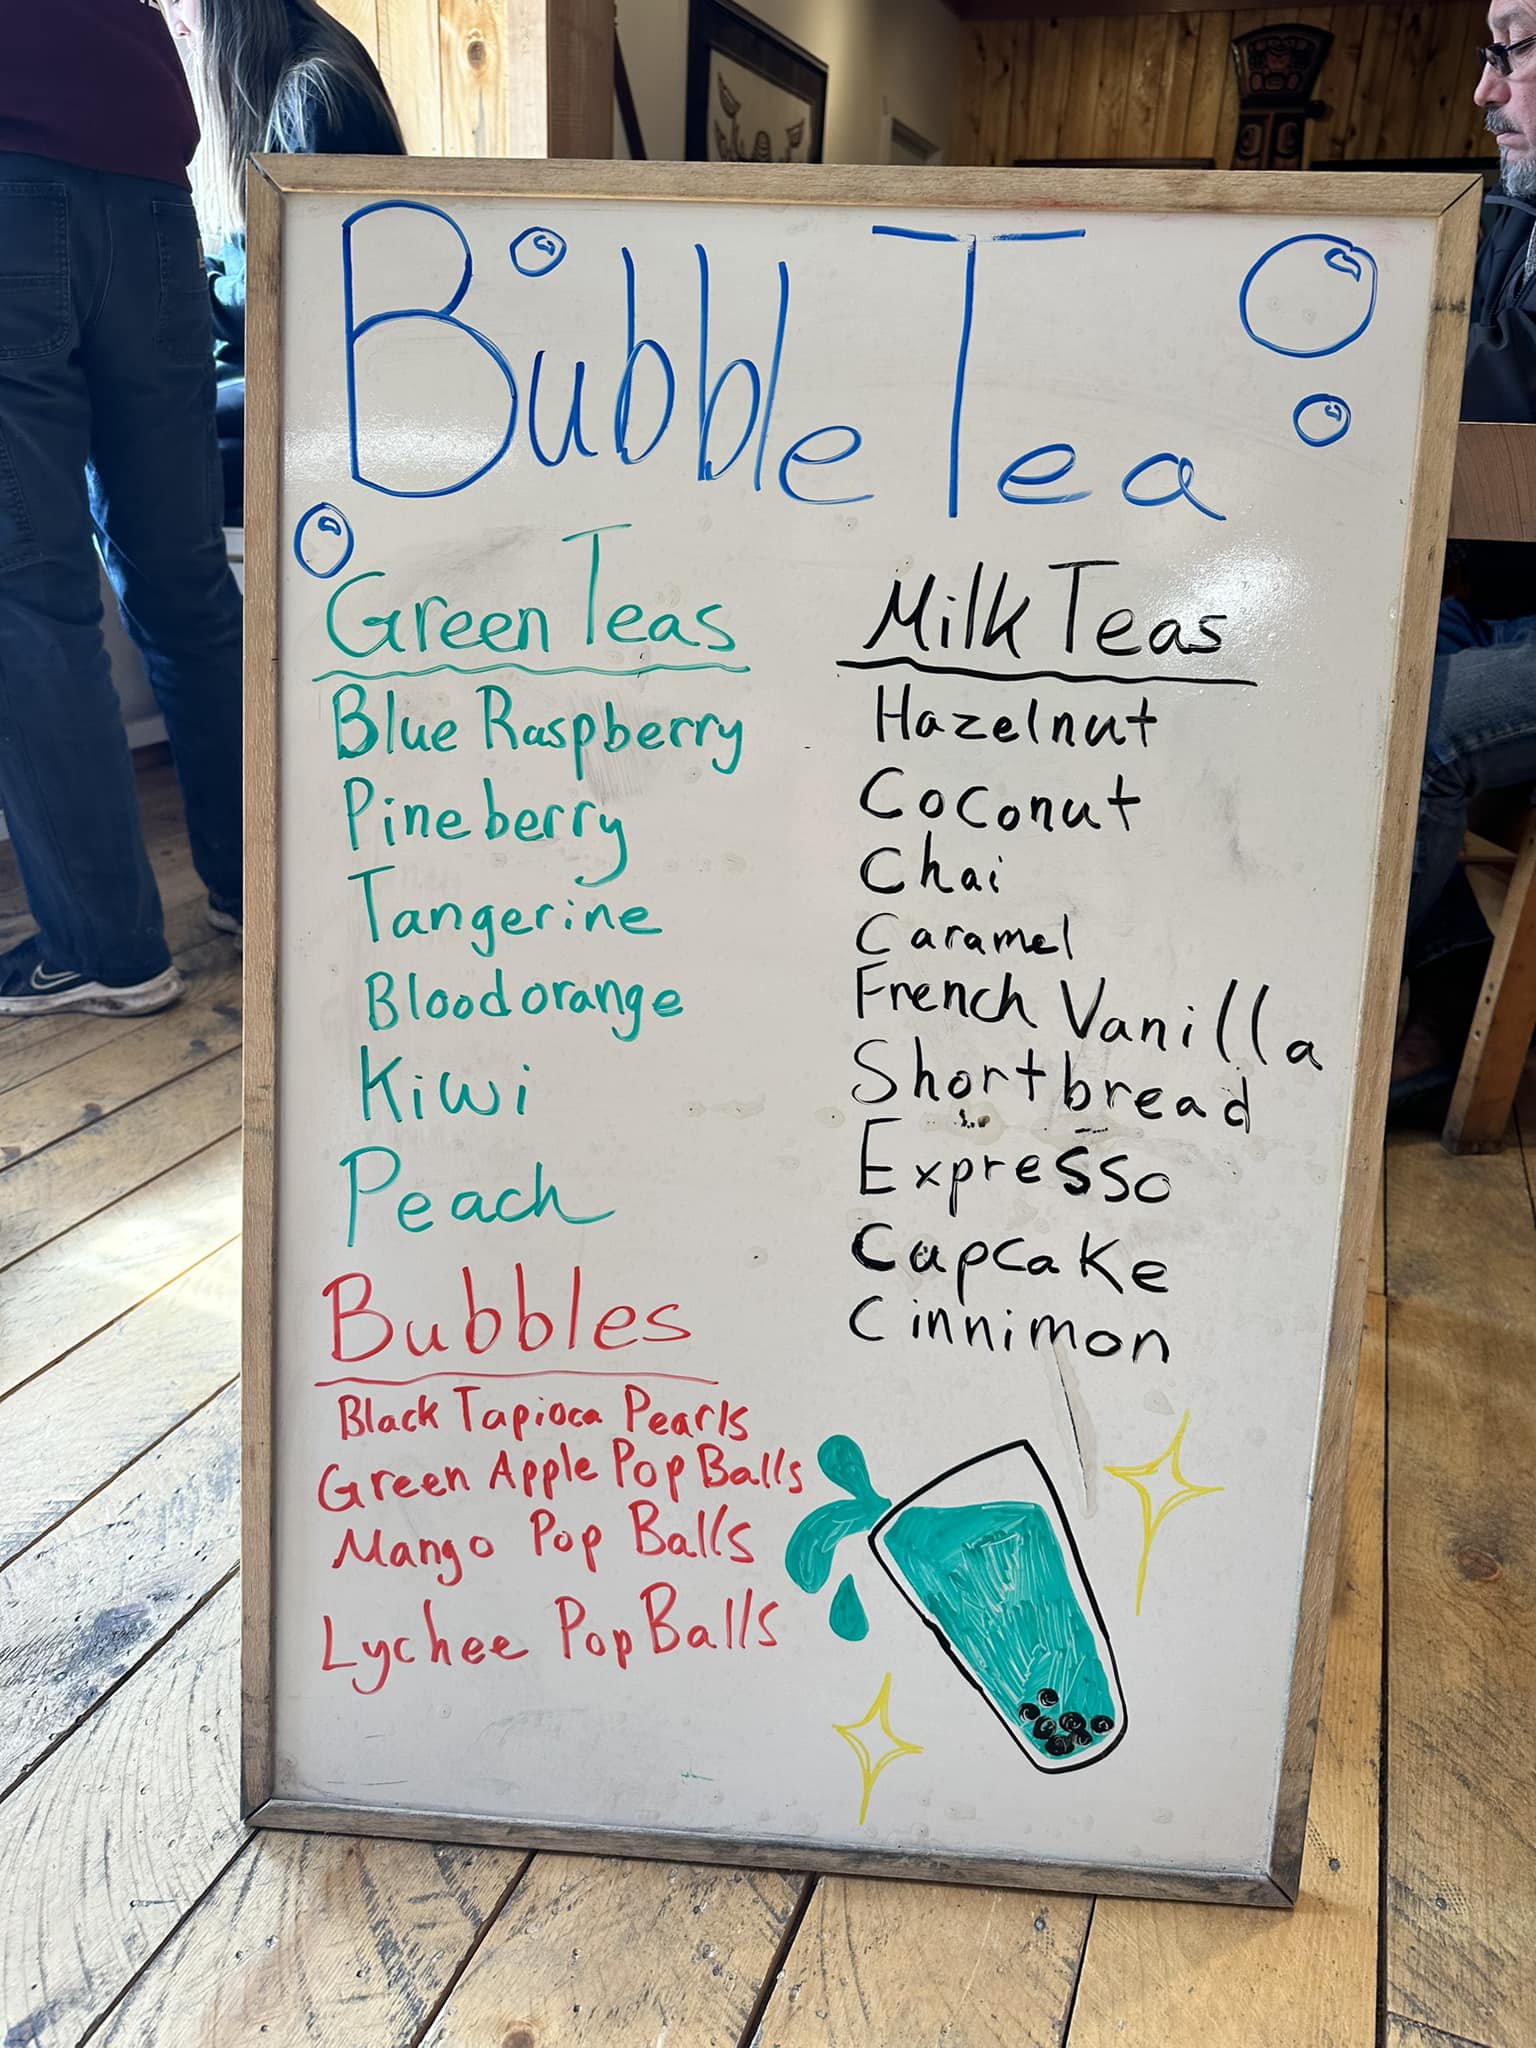 Bubble Tea
Green Teas
Blue Raspberry
Pineberry
Tangerine
Bloodorange
Kiwi
Peach
Bubbles
Black Tapioca Pearls
Green Apple Pop Balls
Mango Pop Balls
Lychee Pop Balls
Milk Teas
Hazelnut
Coconut
Chai
Caramel
French Vanilla
Shortbread
Expresso
Cupcake
Cinnimon